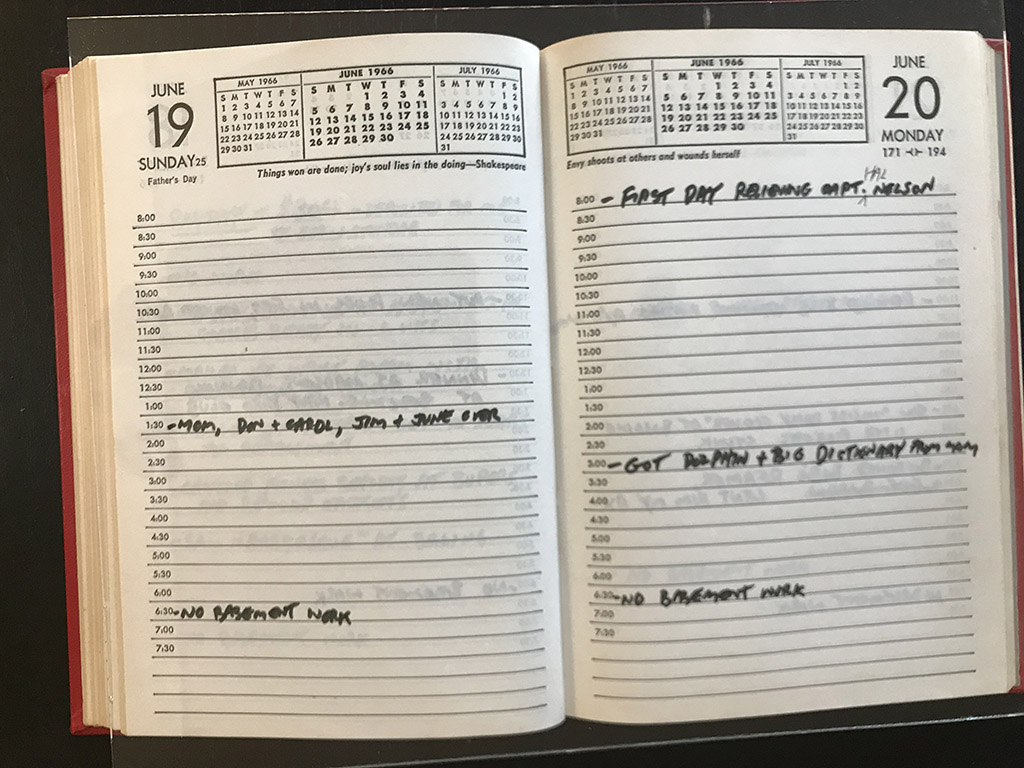 JUNE
19
SUNDAY 25
Father's Day
MAY 1966
S M T W T F S
1 2 3 4 5 6 7
8 9 10 11 12 13 14
15 16 17 18 19 20 21
22 23 24 25 26 27 28
29 30 31
JUNE 1966
S M T W T F S
1 2 3 4
5 6 7 8 9 10 11
12 13 14 15 16 17 18
19 20 21 22 23 24 25
26 27 28 29 30
JULY 1966
S M T W T F S
1 2
3 4 5 6 7 8 9
10 11 12 13 14 15 16
17 18 19 20 21 22 23
24 25 26 27 28 29 30
31
Things won are done; joy's soul lies in the doing—Shakespeare
8:00
8:30
9:00
9:30
10:00
10:30
11:00
11:30
12:00
12:30
1:00
1:30 - MOM, DON + CAROL, JIM + JUNE OVER
2:00
2:30
3:00
3:30
4:00
4:30
5:00
5:30
6:00
6:30 - NO BASEMENT WORK
7:00
7:30
MAY 1966
S M T W T F S
1 2 3 4 5 6 7
8 9 10 11 12 13 14
15 16 17 18 19 20 21
22 23 24 25 26 27 28
29 30 31
JUNE 1966
S M T W T F S
1 2 3 4
5 6 7 8 9 10 11
12 13 14 15 16 17 18
19 20 21 22 23 24 25
26 27 28 29 30
JULY 1966
S M T W T F S
1 2
3 4 5 6 7 8 9
10 11 12 13 14 15 16
17 18 19 20 21 22 23
24 25 26 27 28 29 30
31
JUNE
20
MONDAY
171 194
Envy shoots at others and wounds herself
8:00 - FIRST DAY RELIEVING CAPT. HAL NELSON
8:30
9:00
9:30
10:00
10:30
11:00
11:30
12:00
12:30
1:00
1:30
2:00
2:30
3:00 - GOT DOLPHIN + BIG DICTIONARY FROM MOM
3:30
4:00
4:30
5:00
5:30
6:00
6:30 - NO BASEMENT WORK
7:00
7:30